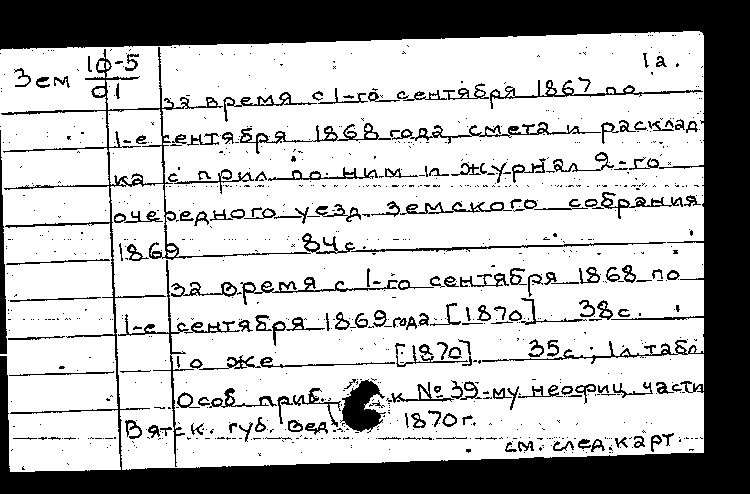 Зем 10-5 1а.
01
за время с 1-го сентября 1867 по
1-е сентября 1868 года, смета и расклад-
ка с прил. по ним и журнал 2-го
очередного уезд. земского собрания.
1869 84с.
за время с 1-го сентября 1868 по
1-е сентября 1869 года. [1870]. 38с.
То же. [1870]. 35с.; 1л. табл.
Особ. приб. к № 39-му неофиц. части
Вятск. губ. вед. 1870г.
см. след. карт.